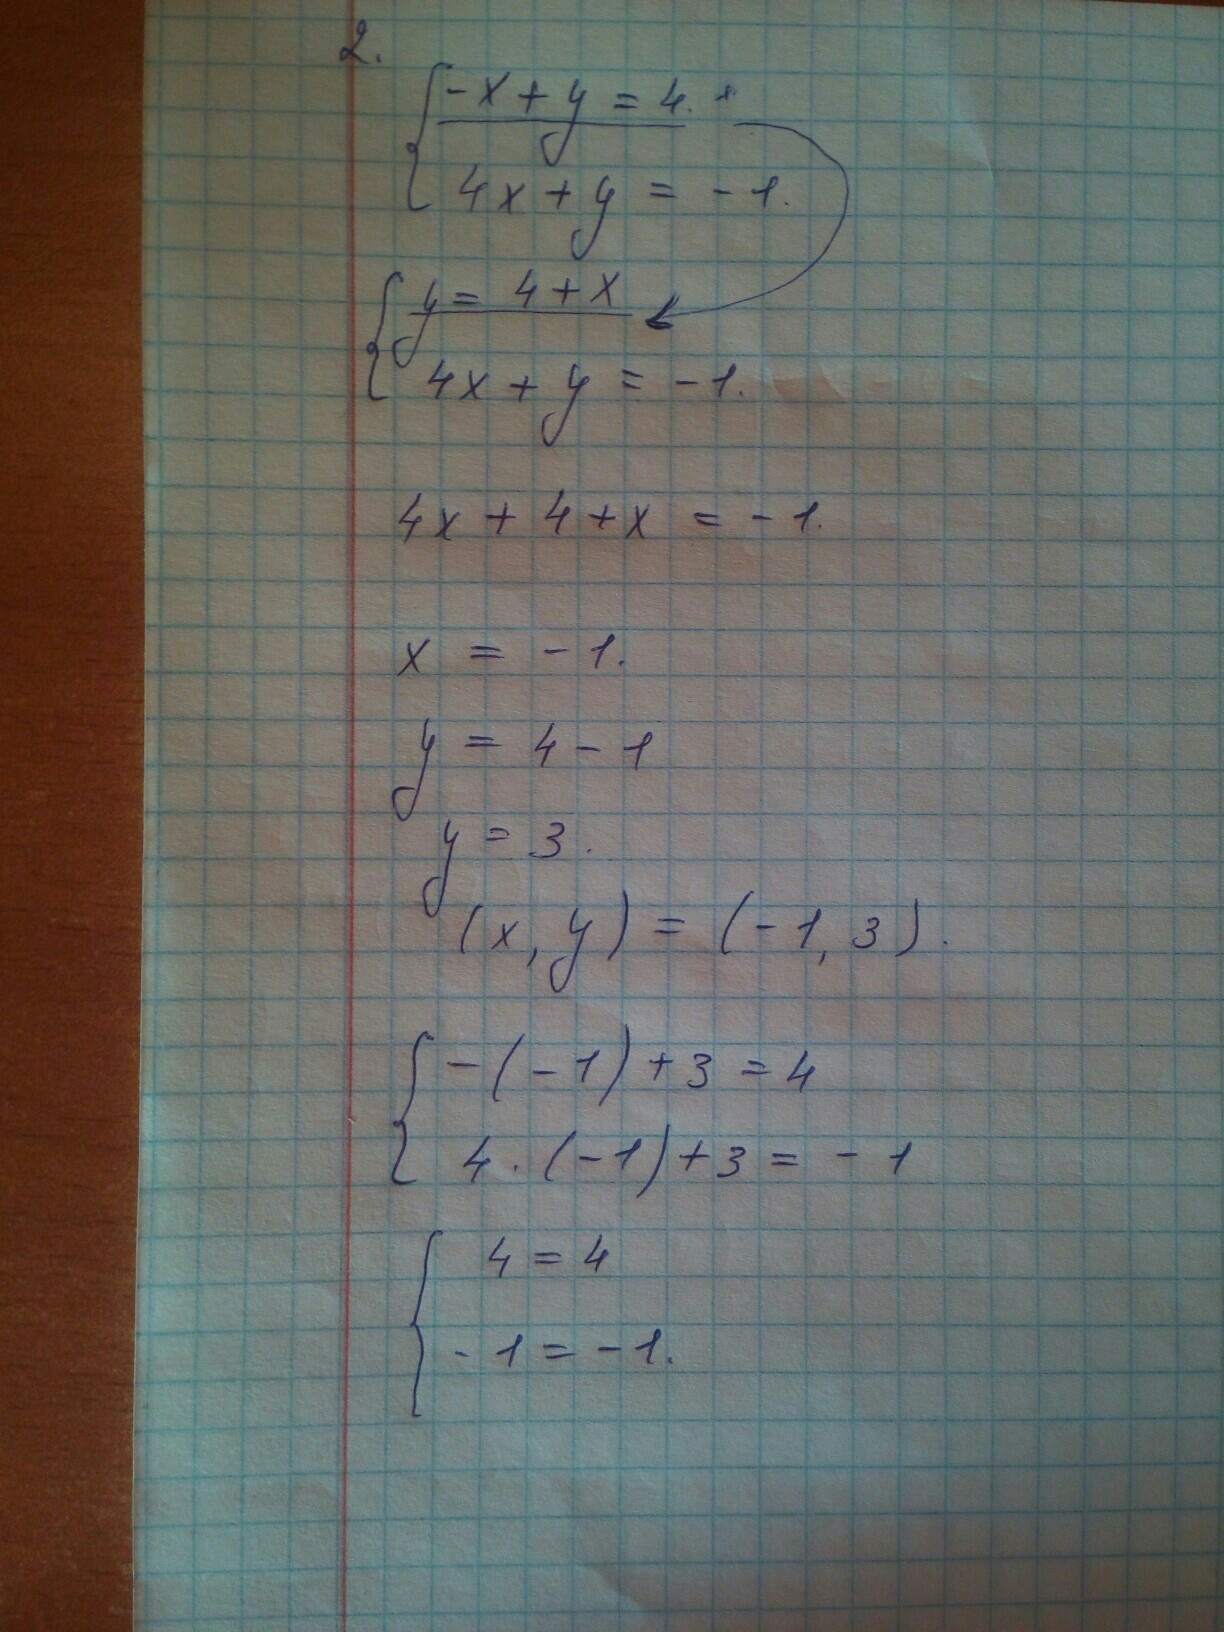 2.
-x + y = 4.
4x + y = -1.
y = 4 + x
4x + y = -1.
4x + 4 + x = -1.
x = -1.
y = 4 - 1
y = 3.
(x, y) = (-1, 3).
-(-1) + 3 = 4
4 · (-1) + 3 = -1
4 = 4
-1 = -1.